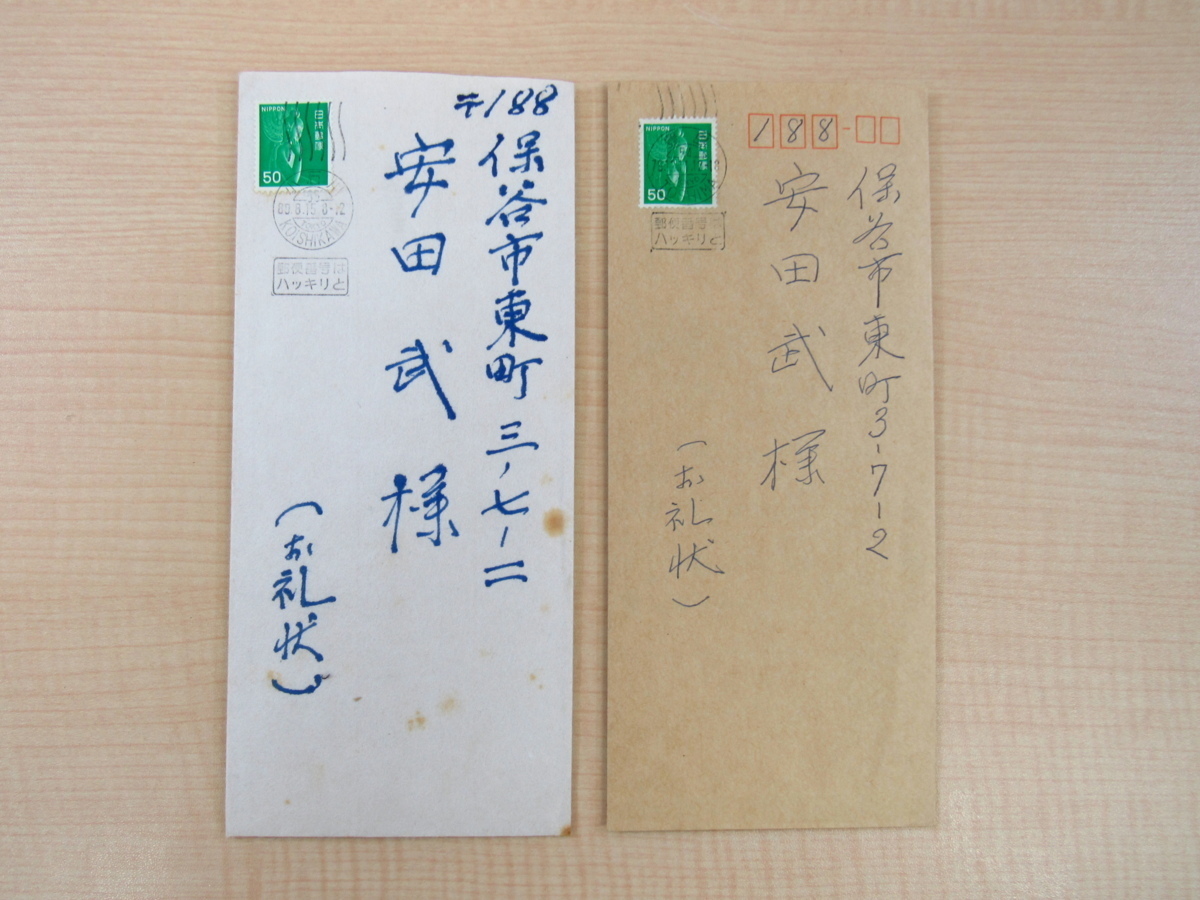 〒188
保谷市東町三ノ七ー二
安田武様
(お礼状)
NIPPON
日本郵便
50
KOISHIKAWA
郵便番号は
ハッキリと
188
保谷市東町3-7-2
安田武様
(お礼状)
NIPPON
日本郵便
50
郵便番号
ハッキリと